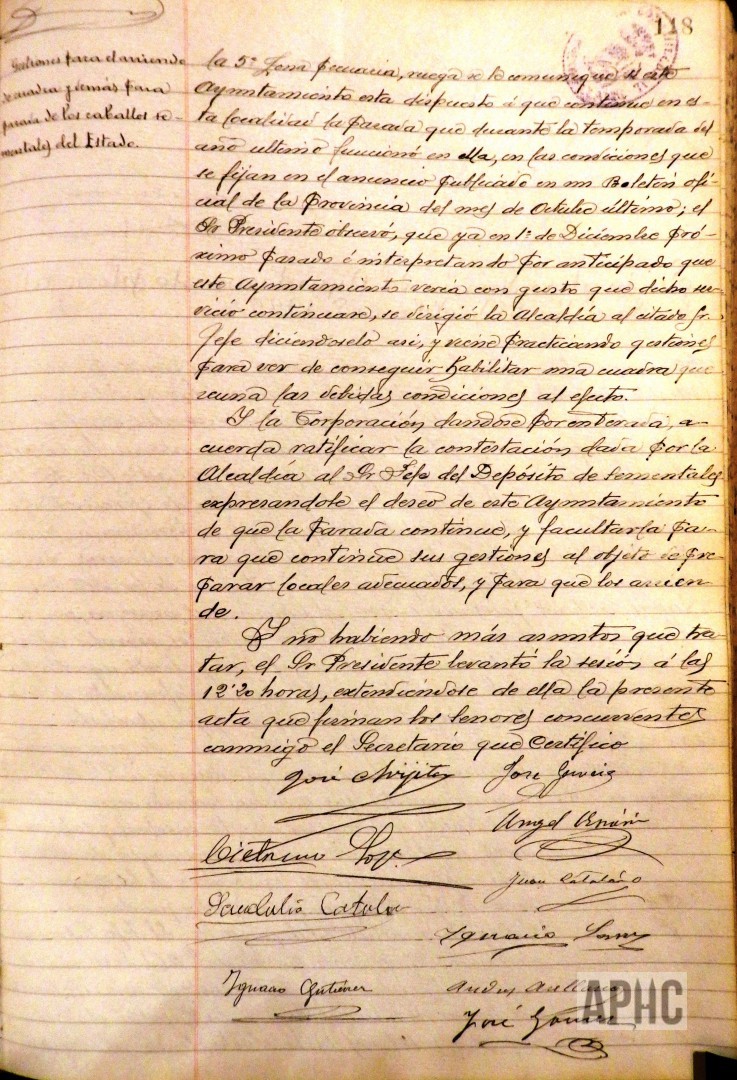 118
Gestiones para el arriendo
de cuadra y demás para
parada de los caballos se-
mentales del Estado.
la 5ª Zona Pecuaria, ruega se le comunique si este
Ayuntamiento esta dispuesto á que continue en es-
ta localidad la Parada que durante la temporada del
año ultimo funcionó en ella, en las condiciones que
se fijan en el anuncio publicado en un Boletin ofi-
cial de la Provincia del mes de Octubre último; el
Sr Presidente observó, que ya en 1º de Diciembre pró-
ximo pasado é interpretando por anticipado que
este Ayuntamiento veria con gusto que dicho ser-
vicio continuase, se dirigió la Alcaldía al citado Sr
Jefe diciendoselo asi, y viene practicando gestiones
para ver de conseguir habilitar una cuadra que
reuna las debidas condiciones al efecto.
Y la Corporación dandose por enterada, a-
cuerda ratificar la contestación dada por la
Alcaldía al Sr Jefe del Depósito de Sementales
expresandole el deseo de este Ayuntamiento
de que la Parada continue, y facultarla pa-
ra que continue sus gestiones al objeto de pre-
parar locales adecuados, y para que los arrien-
de.
Y no habiendo más asuntos que tra-
tar, el Sr Presidente levantó la sesión á las
12'20 horas, extendiéndose de ella la presente
acta que firman los Señores concurrentes
conmigo el Secretario que Certifico
José
José
Angel
Juan Catalán
Catalan
Ignacio
Ignacio Gutiérrez
Andres
José Gómez
APHC